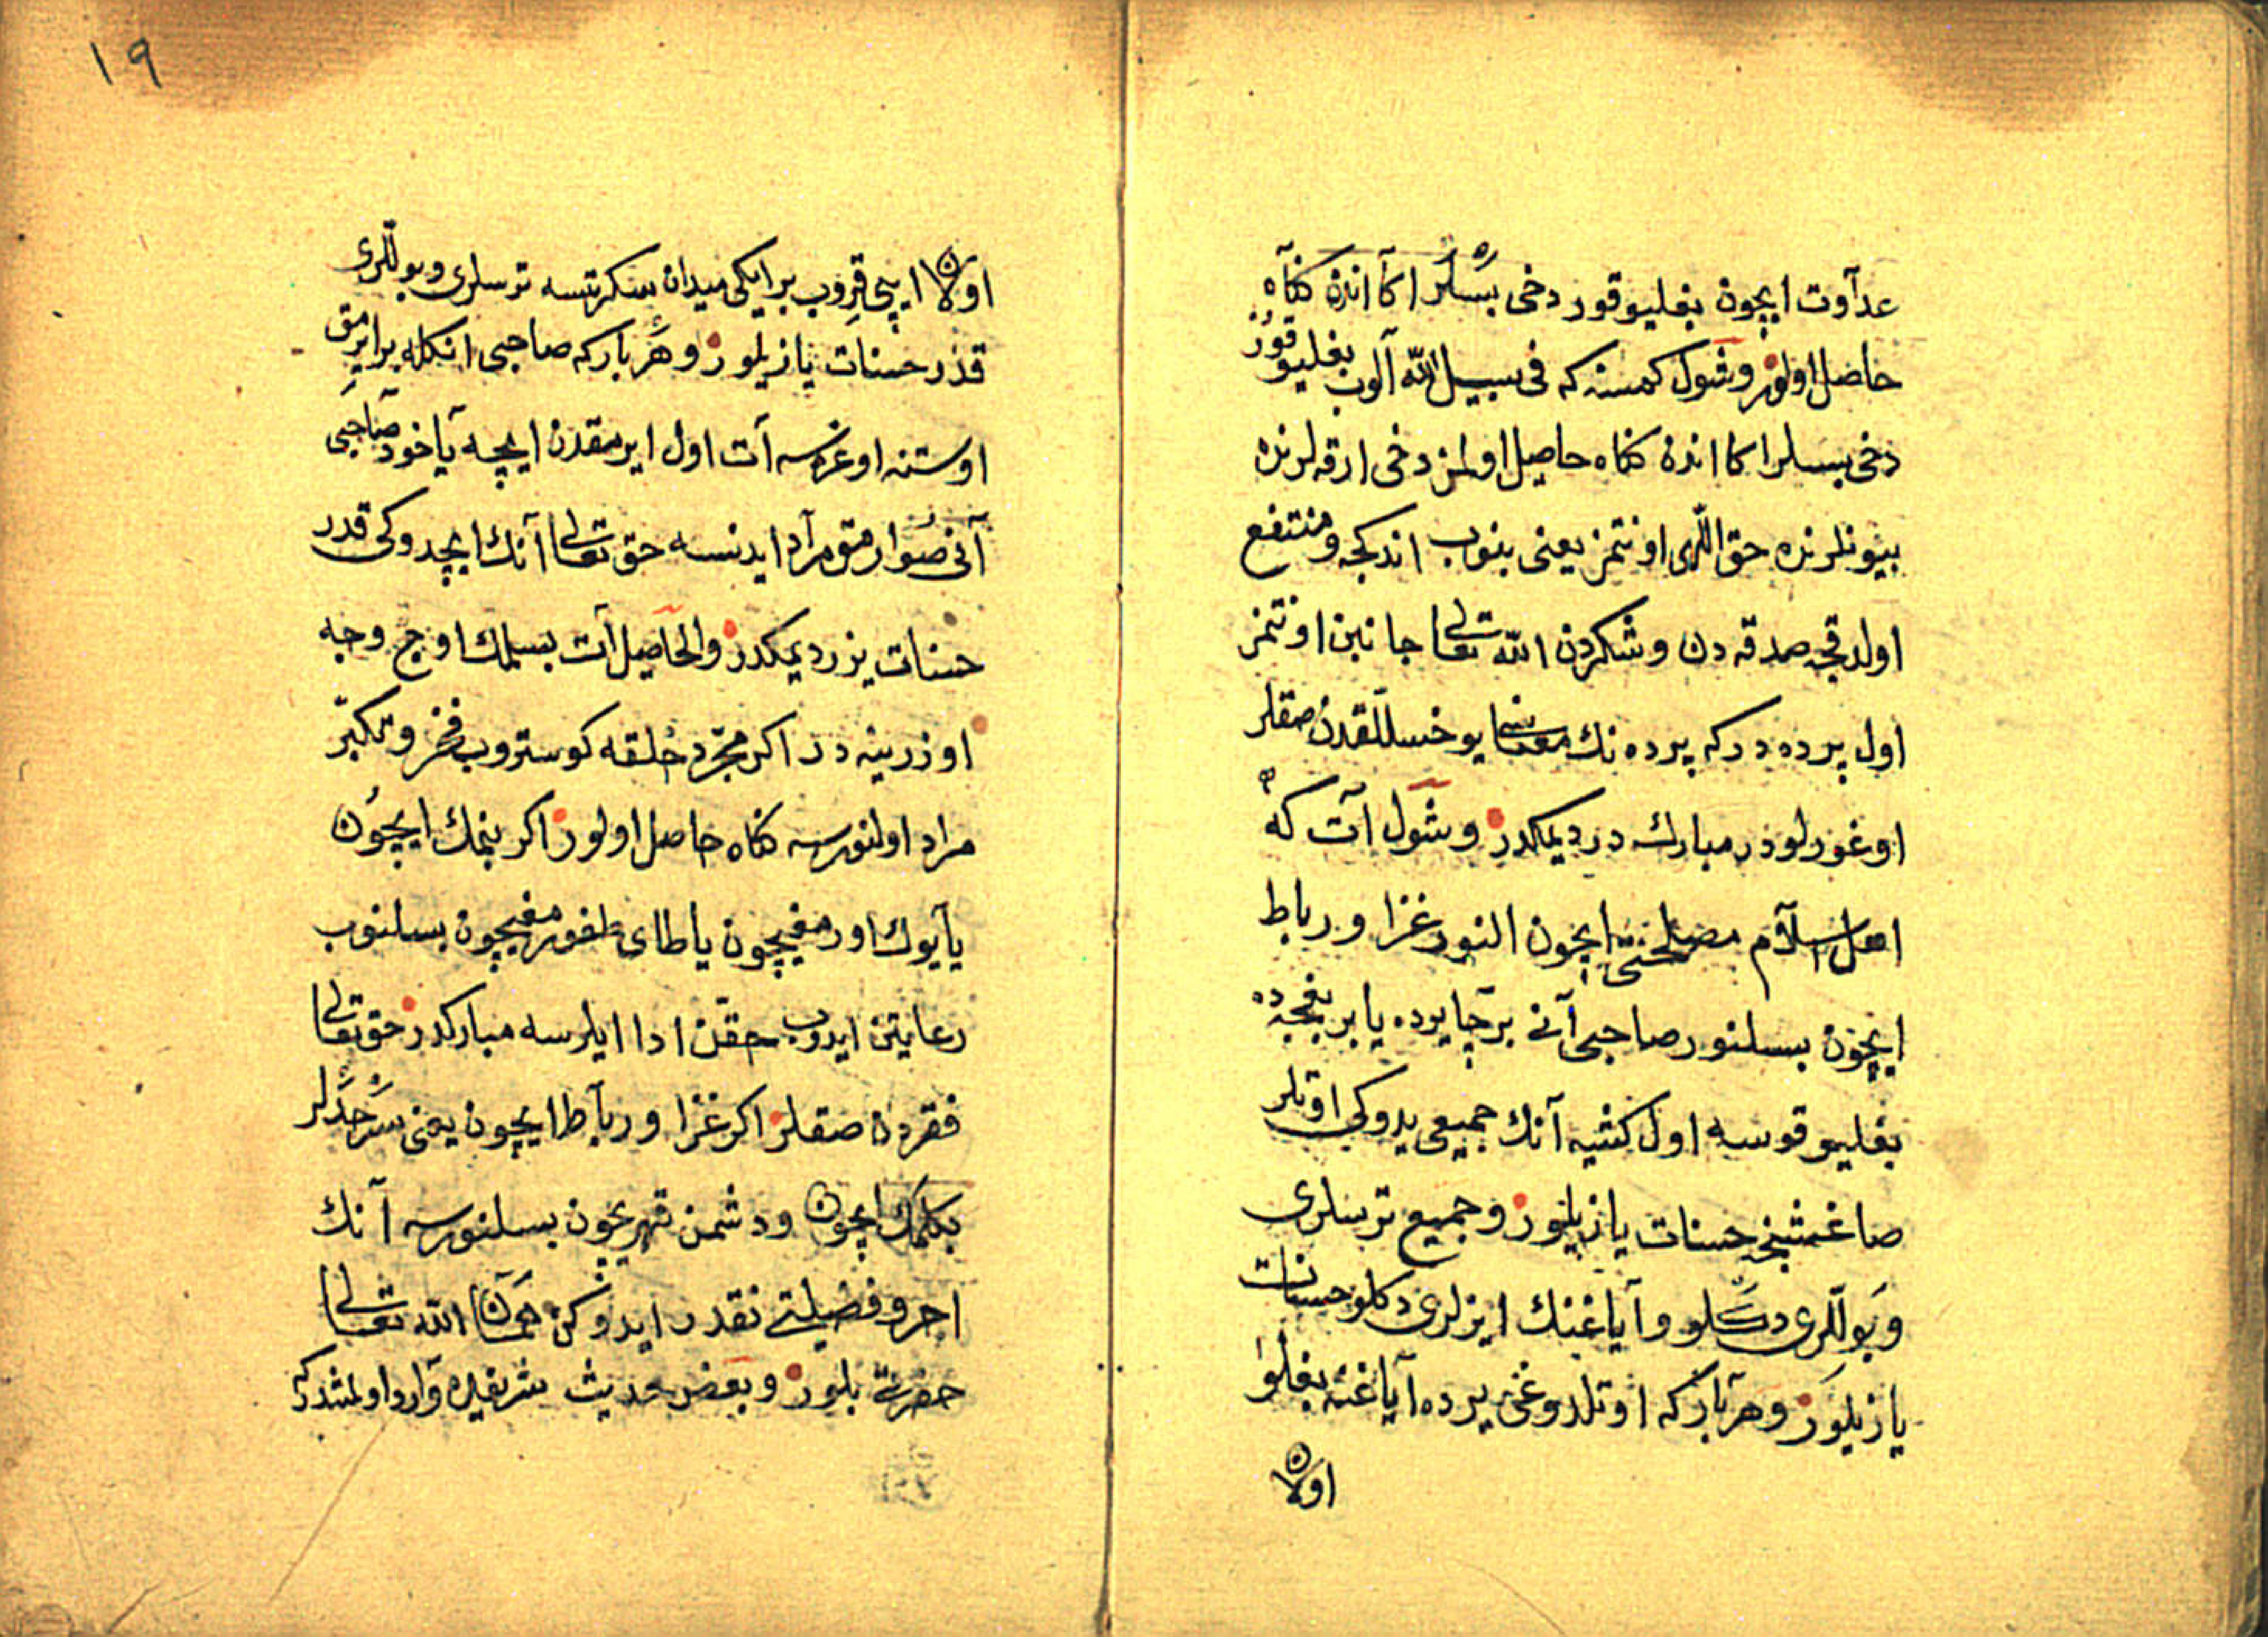 عدآوت ايچون بغليو قور دخى بسلر اكا اندن كناه
حاصل اولور وشول كمسنه كه فى سبيل الله آلوب بغليو قور
دخى بسلر اكا اندن كناه حاصل اولمز دخى ارقه لرنده
بيونلرنده حق اللهى اونتمز يعنى بنوب اندكجه ومنتفع
اولدقجه صدقه دن وشكردن الله تعالى جانبين اونتمز
اول پرده در كه پرده نك معناسى يوخسللقدن صقلر
اوغورلودر مباركدر ديمكدر وشول آت كه
اهل اسلام مصلحتى ايچون النور غزا ورباط
ايچون بسلنور صاحبى آنى بر چايرده يا بر بغچه ده
بغليو قوسه اول كشيه آنك جميع يدوكى اوتلر
صاغشنجه حسنات يازيلور وجميع ترسلرى
وبوللرى دكلو وآياغنك ايزلرى دكلو حسنات
يازيلور وهر بار كه اوتلدوغى يرده آياغنه بغلو
اولان
١٩
اولان ايپى قروب بر ايكى ميدان سكرتسه ترسلرى وبوللرى
قدر حسنات يازيلور وهر بار كه صاحبى انكله بر ايرمق
اوستنه اوغرسه آت اول ايرمقدن ايچه يا خود صاحبى
آنى صوارمق مراد ايدنسه حق تعالى آنك ايچدوكى قدر
حسنات يزر ديمكدر والحاصل آت بسلمك اوچ وجه
اوزرينه در اكر مجرد خلقه كوستروب فخر وتكبر
مراد اولنورسه كناه حاصل اولور اكر بنمك ايچون
يا يوك اورمغيچون يا طاى طغورمغيچون بسلنوب
رعايتن ايدوب حقن ادا ايلرسه مباركدر حق تعالى
فقردن صقلر اكر غزا ورباط ايچون يعنى سرحدلر
بكلمك ايچون ودشمن قهريچون بسلنورسه آنك
اجر وفضيلتى نقدر ايدوكن همان الله تعالى
حضرتى بلور وبعض حديث شريفده وارد اولمشدركه